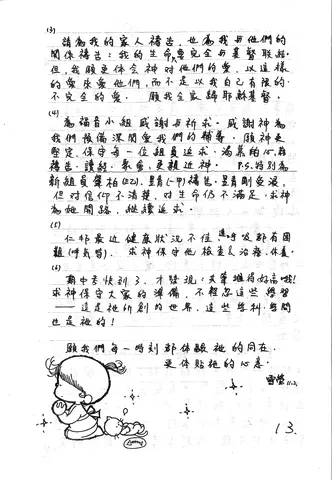 (3)
請為我的家人禱告,也為我與他們的
關係禱告:我的生命要完全與基督聯結.
但,我願更体会神对他們的愛,以這樣
的愛來愛他們,而不是以我自己有限的.
不完全的愛. 願我全家歸耶穌基督.
(4)
為福音小組感謝与祈求. 感謝神為
我們預備深深愛我們的輔導. 願神
堅定,保守每一位組員追求、渴慕的心,在
禱告.讀經. 更親近神. P.S.特別為
新組員 禱告.
但对信仰不清楚,对生命仍不滿足.求神
為她開路,继續追求.
(5)
仁邦最近健康狀況不佳,連呼吸都有困
難(呼氣時). 求神保守他檢查&治療、休養.
(6)
期中考快到了,才發現,大家準備得好高哦!
求神保守大家的準備,不輕忽這些學習
——這是祂所創的世界,這些學科、學問
也是祂的!
願我們每一時刻都体驗祂的同在.
更体貼祂的心意.
雪瑩 11.2.
13.